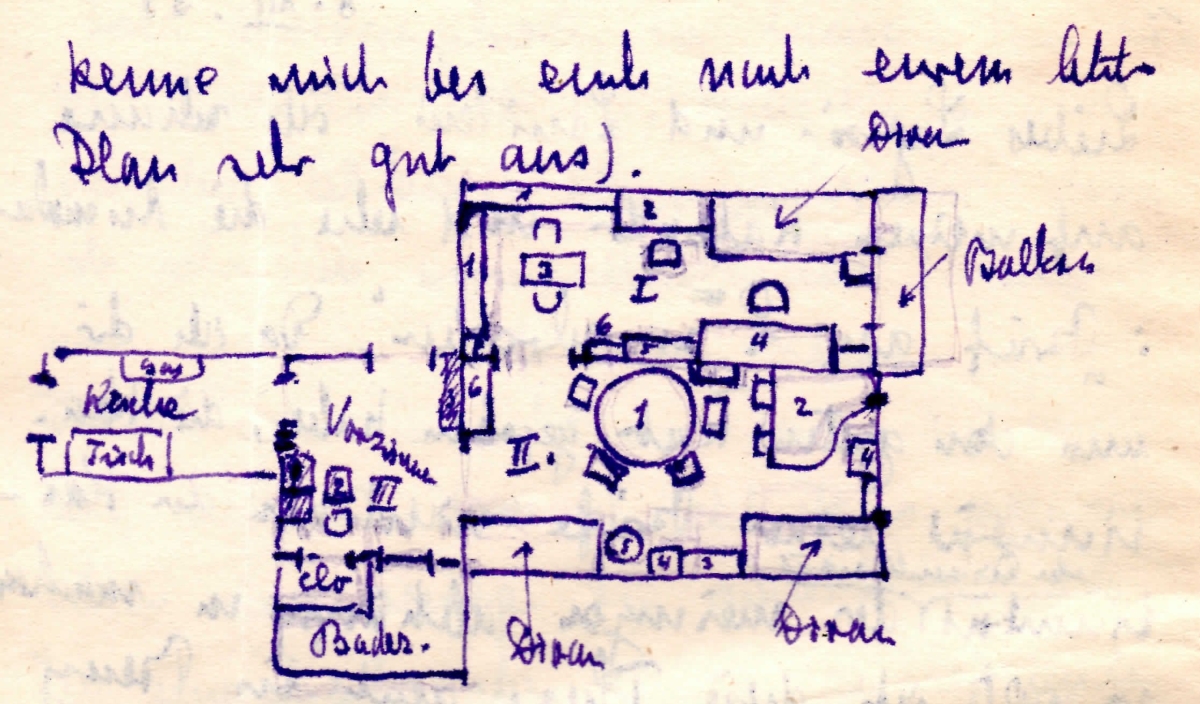 kenne mich bei euch nach eurem letzt.
Plan sehr gut aus).
Divan
1
2
1
3
I
Balkon
6
5
4
Gas
Küche
Tisch
Vorzimm
6
1
2
II.
4
2
III
5
4
3
Clo
Badez.
Divan
Divan